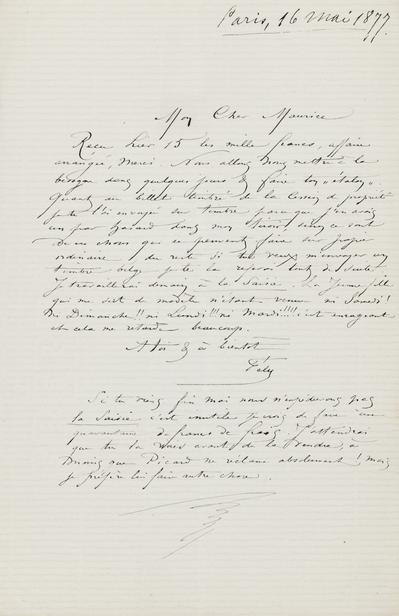 Paris, 16 Mai 1877.
Mon Cher Maurice
Reçu hier 15 les mille francs, affaire
arrangée, Merci. Nous allons nous mettre à la
besogne dans quelques jours & faire ton "étalon".
Quant au billet timbré de la cession de propriété
je te l'ai envoyé sur timbre parce que j'en avais
un par hasard dans mon tiroir, mais ce sont
des choses qui se peuvent faire sur papier
ordinaire, du reste si tu veux m'envoyer un
timbre belge je te la referai tout de suite.
Je travaillerai demain à la Saisie. La jeune fille
qui me sert de modèle n'étant venue ni Samedi!
Ni Dimanche!! ni Lundi!!! ni Mardi!!!! c'est enrageant
et cela me retarde beaucoup.
A toi & à bientôt
Fély
Si tu viens fin mai nous n'expédierons pas
la Saisie c'est inutile je crois de faire une
quarantaine de francs de frais. J'attendrai
que tu la voies avant de la vendre, à
moins que Picard ne réclame absolument! mais
je préfère lui faire autre chose.